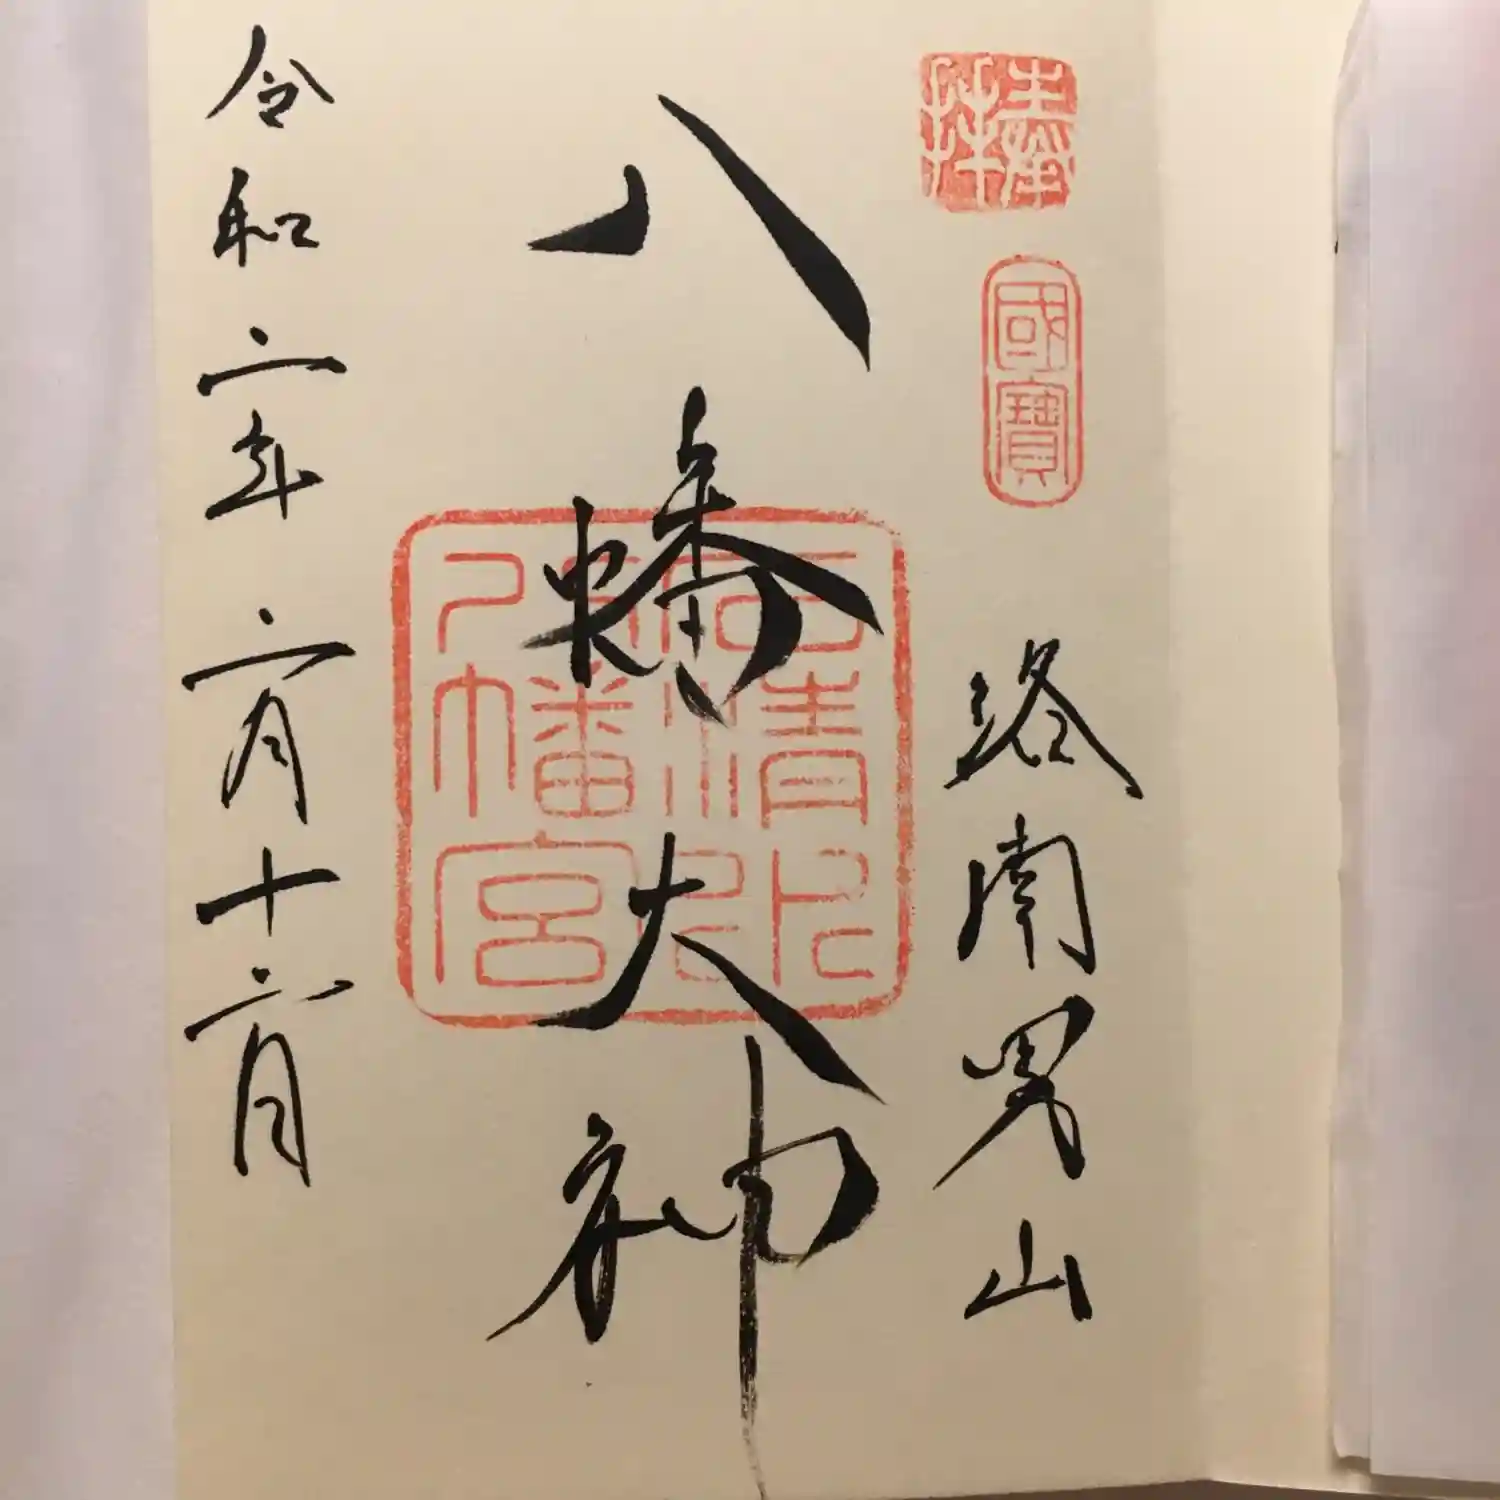 奉拝
國寶
洛南男山
八幡大神
石清水
八幡宮
令和二年二月十六日